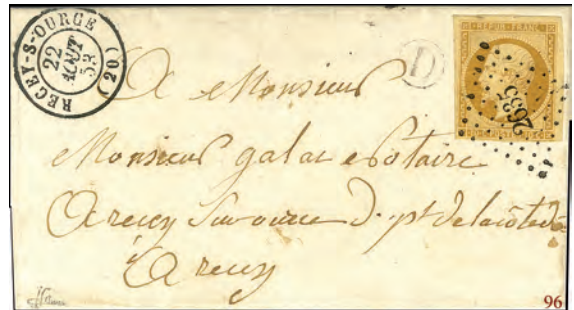 RECEY-S-OURCE
22
AOUT
53
(20)
REPUB. FRANC.
D
2635
A Monsieur
Monsieur galac Notaire
A recey Sur ource D. pt de la côte d
à recey
96